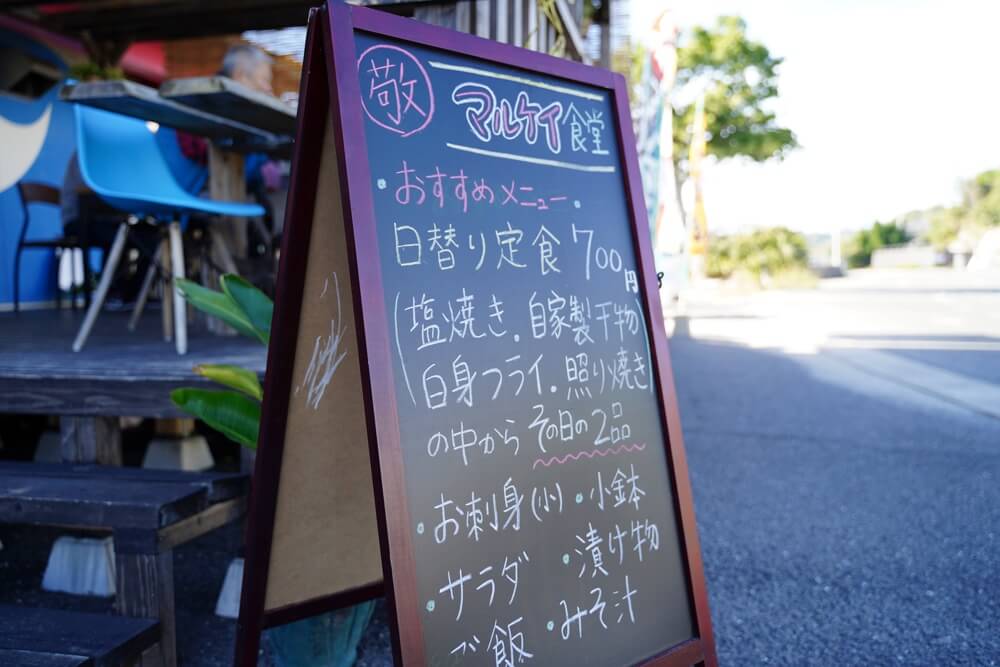 敬 マルケイ食堂
・おすすめメニュー・
日替り定食 700円
(塩焼き.自家製干物
白身フライ.照り焼き)
の中から その日の2品
・お刺身(小)・小鉢
・サラダ ・漬け物
ご飯 ・みそ汁